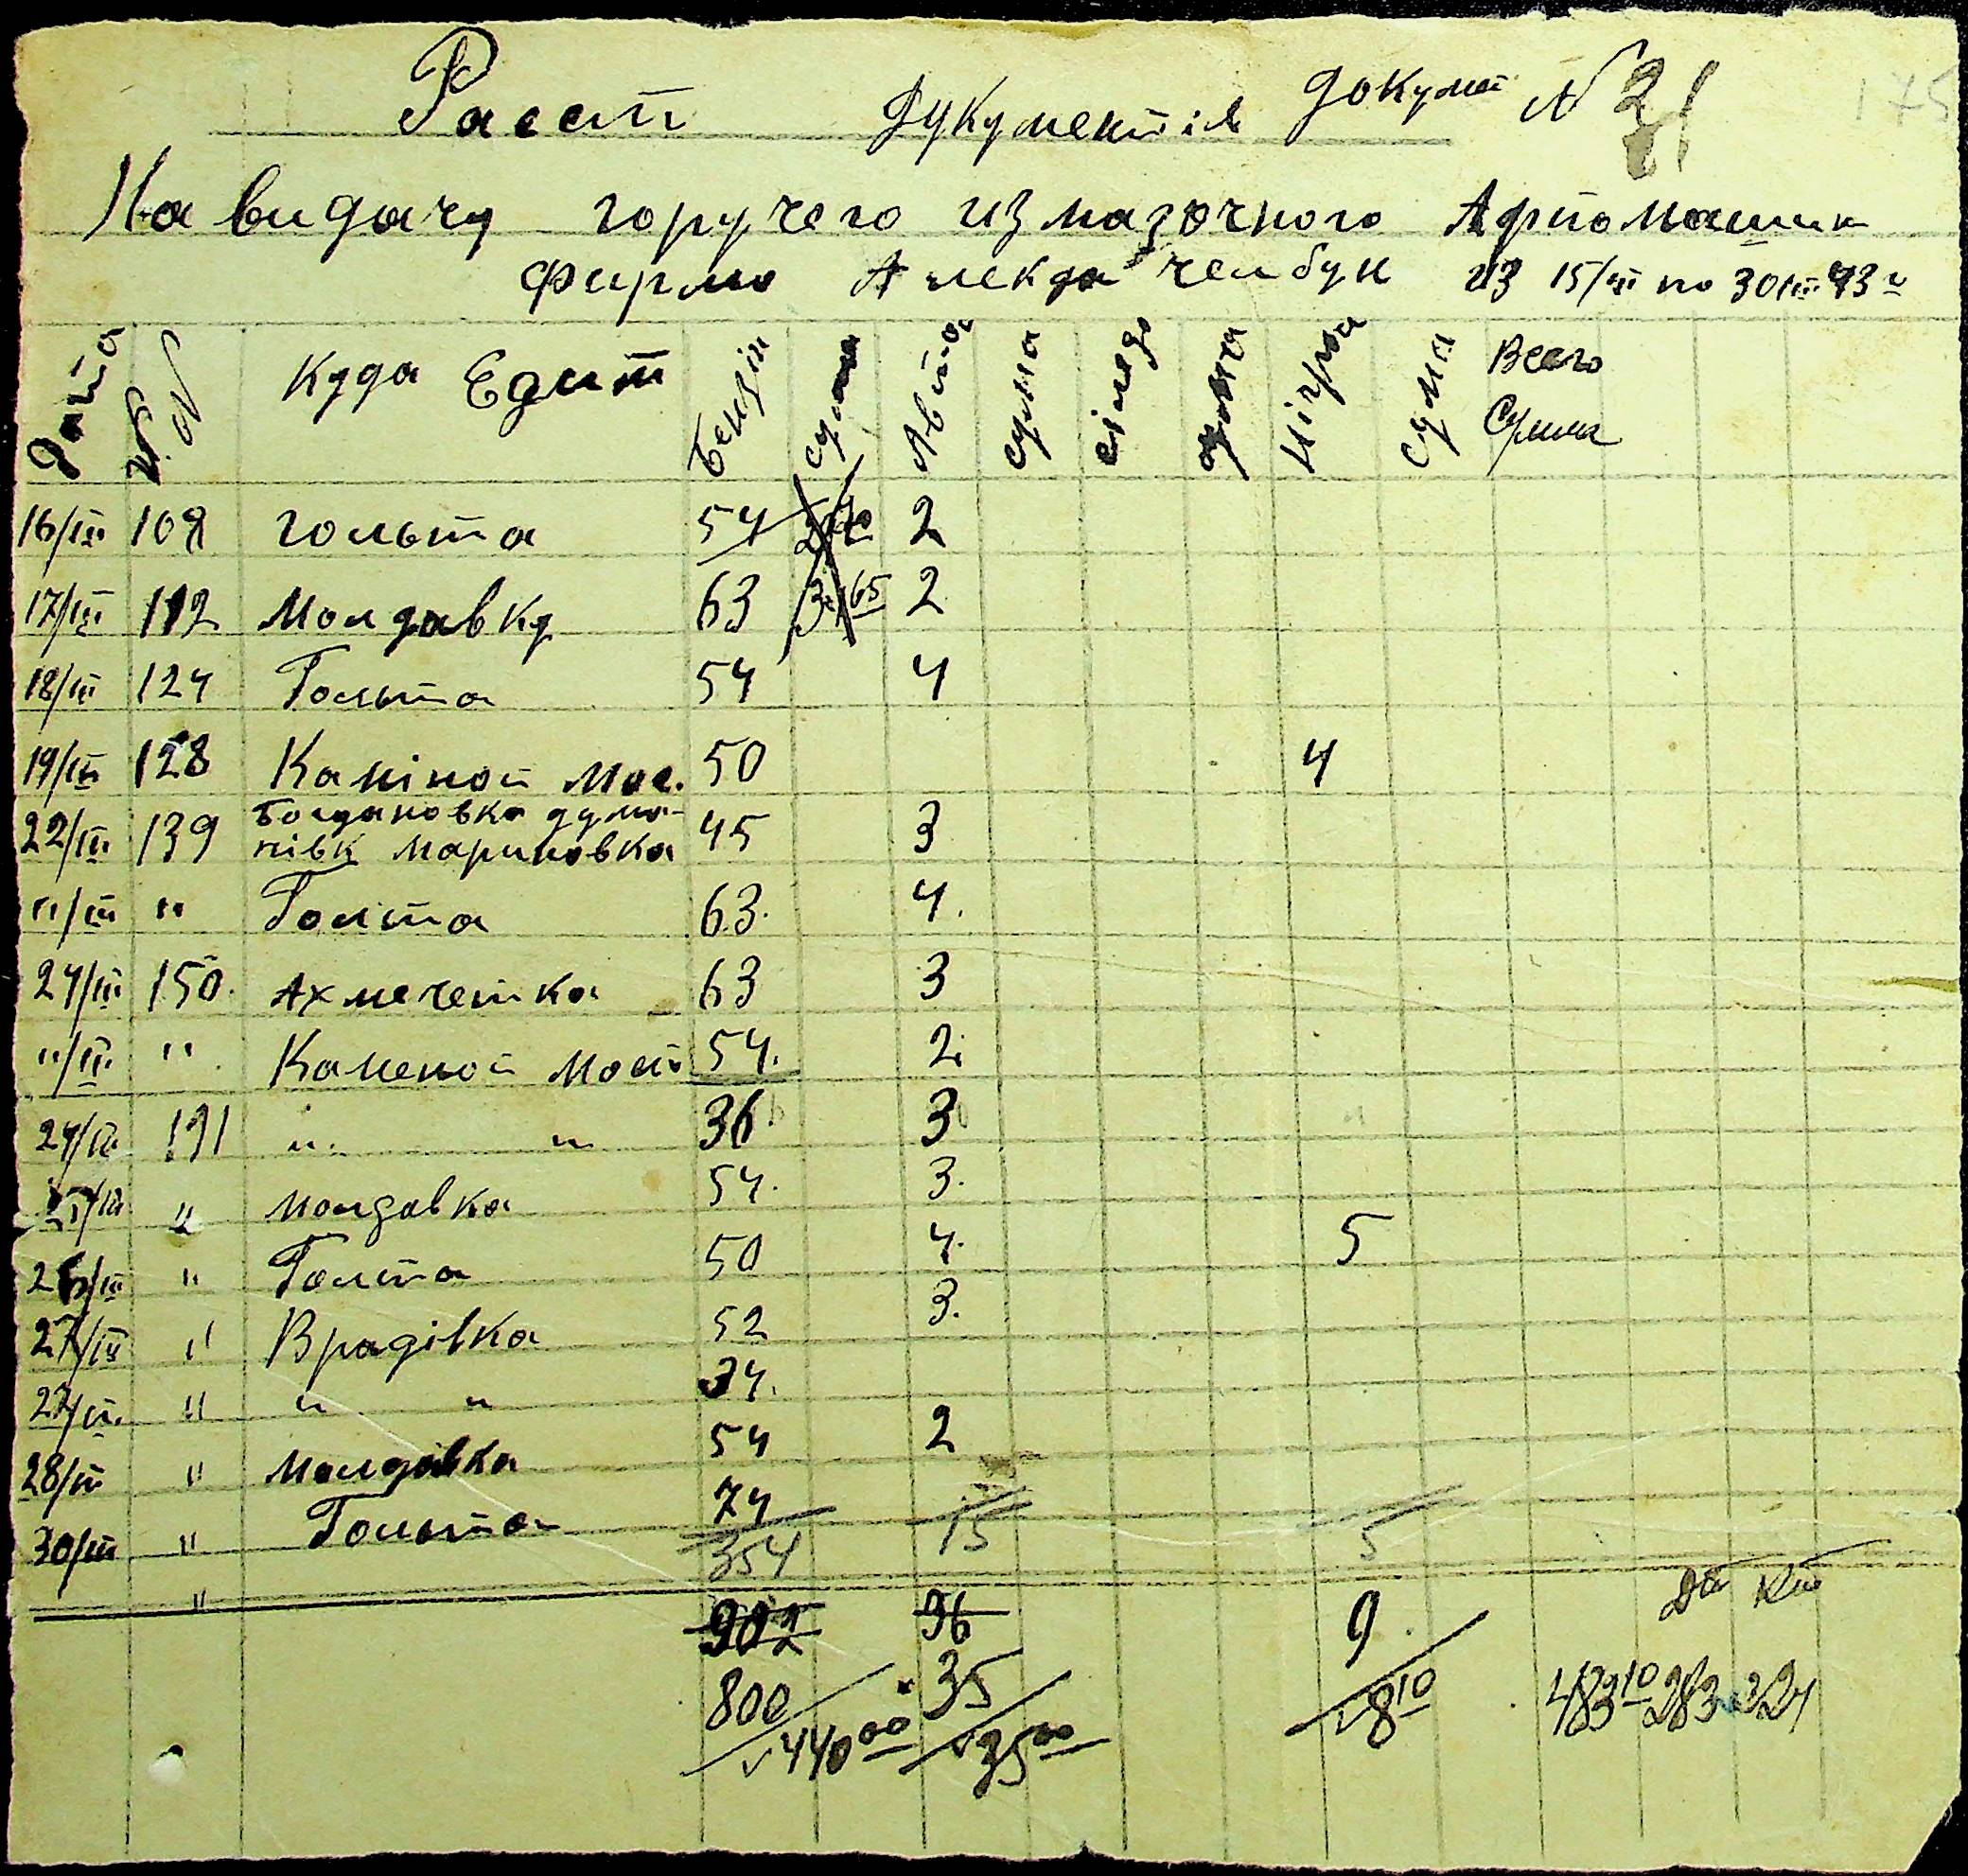 Раест Дукументів Докумет N 21
175
На видачу горучего из мазочного Афтомашин
Фирмо Александа из 15/III по 30/III 43 г
Дата № Куда Едит Бензін сума Авто сума сума Нігрол сума Всего Сумма
16/III 108 Гольта 54 2
17/III 112 Молдавку 63 2
18/III 124 Гольта 54 4
19/III 128 Каміной Мос. 50 4
22/III 139 Богдановка дума-
нівк Мариновка 45 3
"/III " Голта 63. 4.
24/III 150. Ахмечетка 63 3
"/III " Каменой Мост 54. 2.
24/III 191 " " 36. 3
25/III " Молдавка 54. 3.
26/III " Голта 50 4. 5
27/III " Врадівка 52 3.
27/III. " " " 34.
28/III " Молдавка 54 2
30/III " Гольта 74
354 15 5
" 902 36 9. Дт Кт
800 35
440 00 35 00 8 10 483 10 283 324